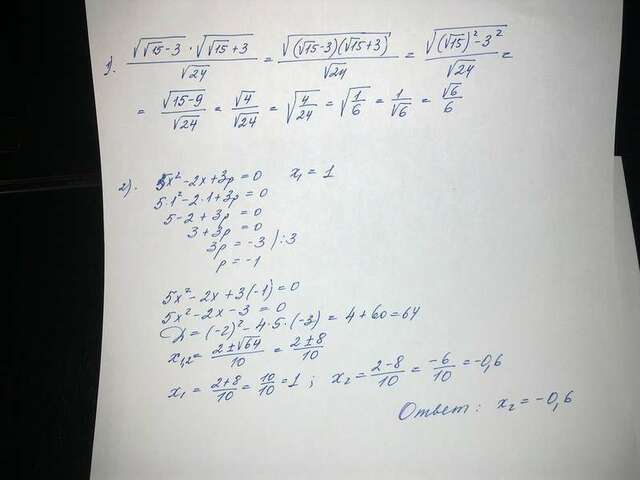 1). (√(√15 - 3) · √(√15 + 3))/√24 = √((√15 - 3)(√15 + 3))/√24 = √((√15)² - 3²)/√24 =
= √(15 - 9)/√24 = √4/√24 = √(4/24) = √(1/6) = 1/√6 = √6/6
2). 5x² - 2x + 3p = 0 x₁ = 1
5·1² - 2·1 + 3p = 0
5 - 2 + 3p = 0
3 + 3p = 0
3p = -3 / :3
p = -1
5x² - 2x + 3(-1) = 0
5x² - 2x - 3 = 0
D = (-2)² - 4·5·(-3) = 4 + 60 = 64
x₁,₂ = (2 ± √64)/10 = (2 ± 8)/10
x₁ = (2+8)/10 = 10/10 = 1 ; x₂ = (2-8)/10 = -6/10 = -0,6
Ответ: x₂ = -0,6